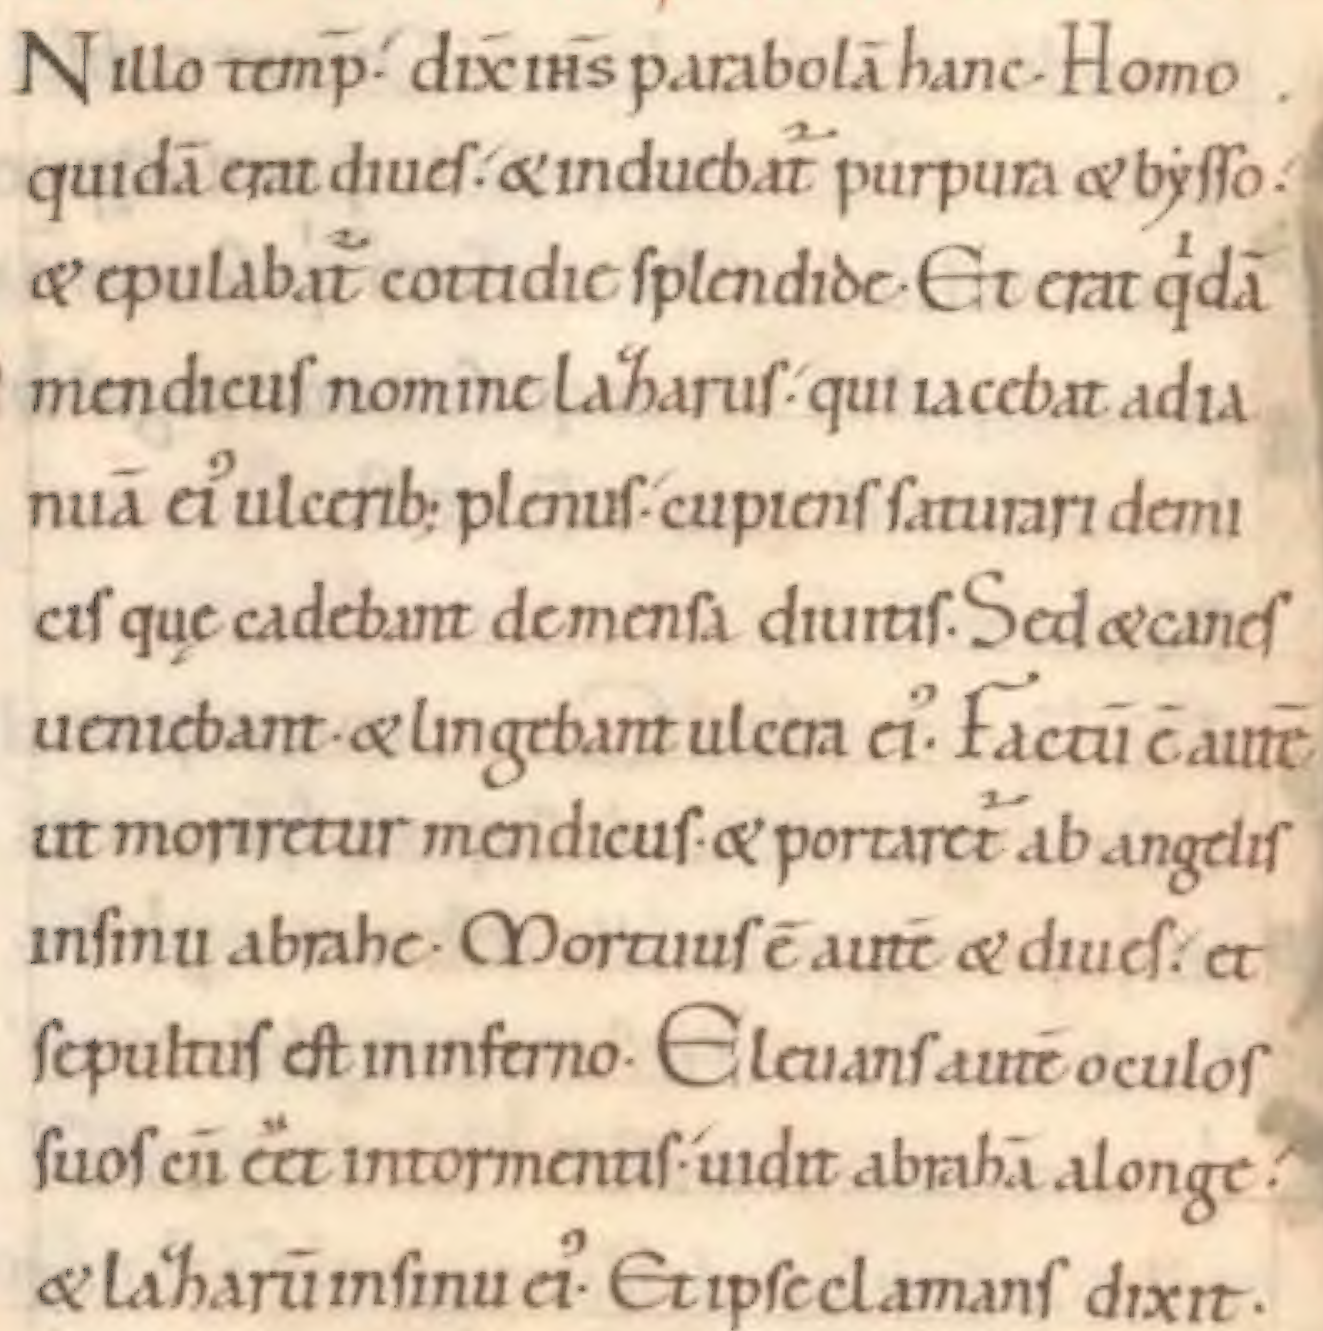 N illo temp̄. dix̄ ih̅s parabolā hanc. Homo
quidā erat diueſ. & induebat᷑ purpura & bẏſſo.
& epulabat᷑ cottidie ſplendide. Et erat qͥdā
mendicuſ nomine laꝣaruſ. qui iacebat adia
nuā eiꝰ ulcerib; plenuſ. cupienſ ſaturari demi
ciſ quę cadebant demenſa diuitiſ. Sed & caneſ
ueniebant. & lingebant ulcera eiꝰ. Factū ē autē
ut moriretur mendicuſ. & portaret᷑ ab angeliſ
inſinu abrahe. Mortuuſ ē autē & diueſ. et
ſepultuſ eſt ininferno. Eleuanſ autē oculoſ
ſuoſ cū eēt intormentiſ. uidit abrahā alonge.
& laꝣarū inſinu eiꝰ. Et ipſe clamanſ dixit.